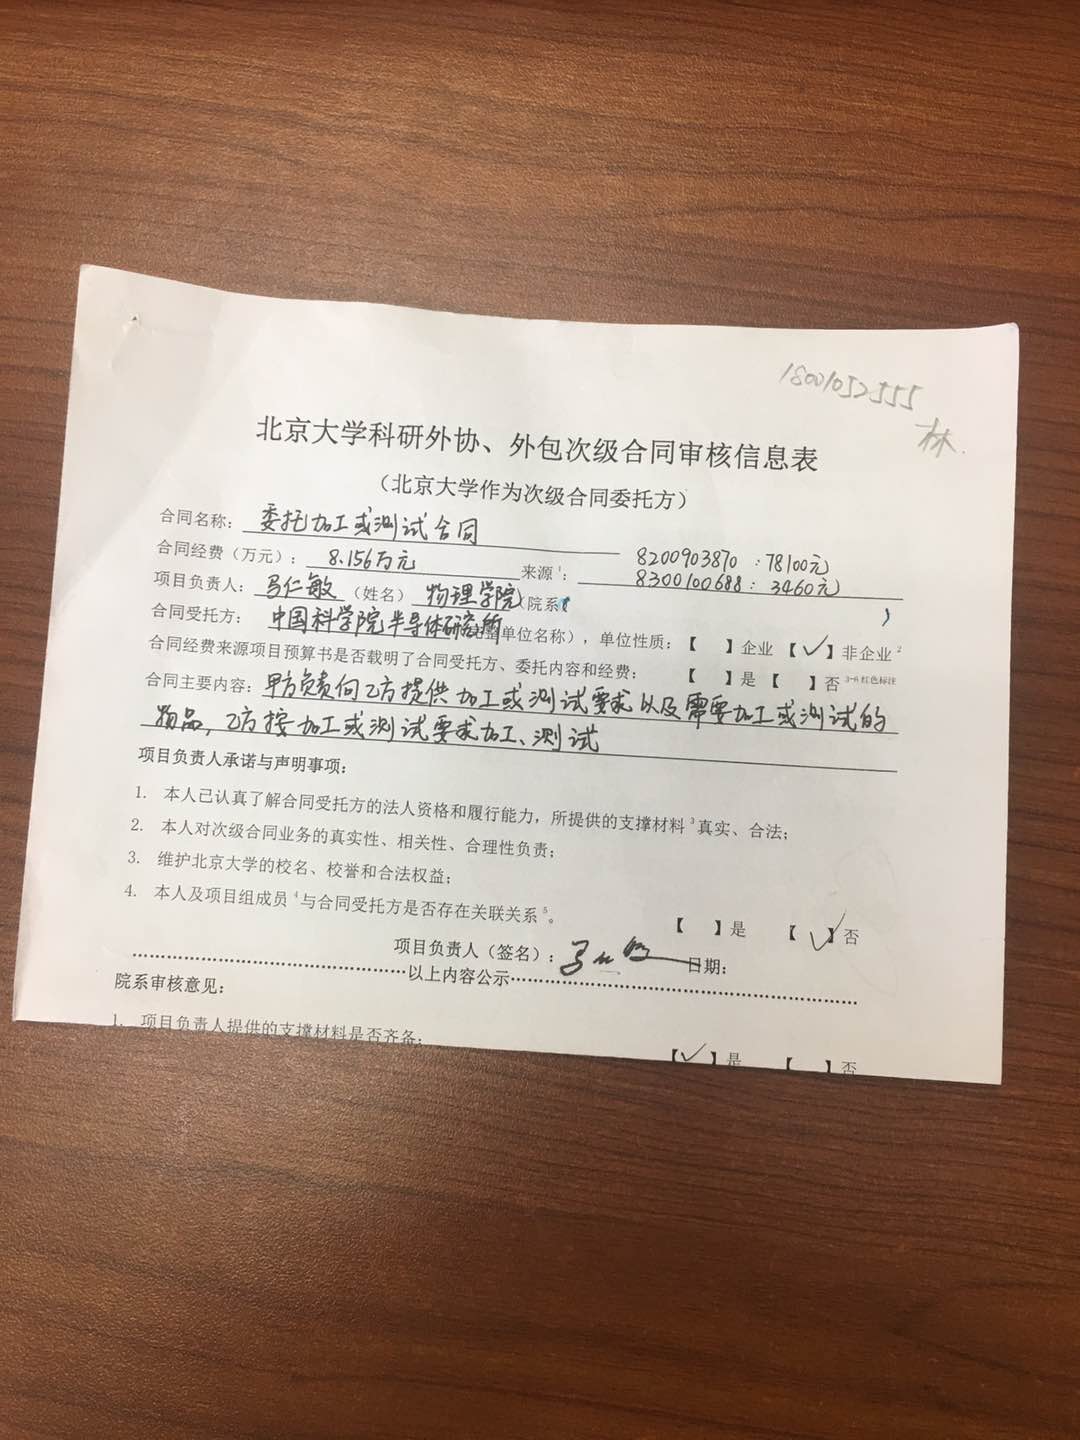 18001052555
林.
北京大学科研外协、外包次级合同审核信息表
（北京大学作为次级合同委托方）
合同名称：委托加工或测试合同
合同经费（万元）：8.156万元 来源1： 8200903870：78100元
8300100688：3460元
项目负责人：马仁敏（姓名）物理学院（院系）
合同受托方：中国科学院半导体研究所（完整单位名称），单位性质：【 】企业【✓】非企业2
合同经费来源项目预算书是否载明了合同受托方、委托内容和经费：【 】是【 】否 3-6 红色标注
合同主要内容：甲方负责向乙方提供加工或测试要求以及需要加工或测试的
物品，乙方按加工或测试要求加工、测试
项目负责人承诺与声明事项：
1. 本人已认真了解合同受托方的法人资格和履行能力，所提供的支撑材料3真实、合法；
2. 本人对次级合同业务的真实性、相关性、合理性负责；
3. 维护北京大学的校名、校誉和合法权益；
4. 本人及项目组成员4与合同受托方是否存在关联关系5。【 】是【✓】否
项目负责人（签名）：马仁敏 日期：
以上内容公示
院系审核意见：
1. 项目负责人提供的支撑材料是否齐备：【✓】是【 】否